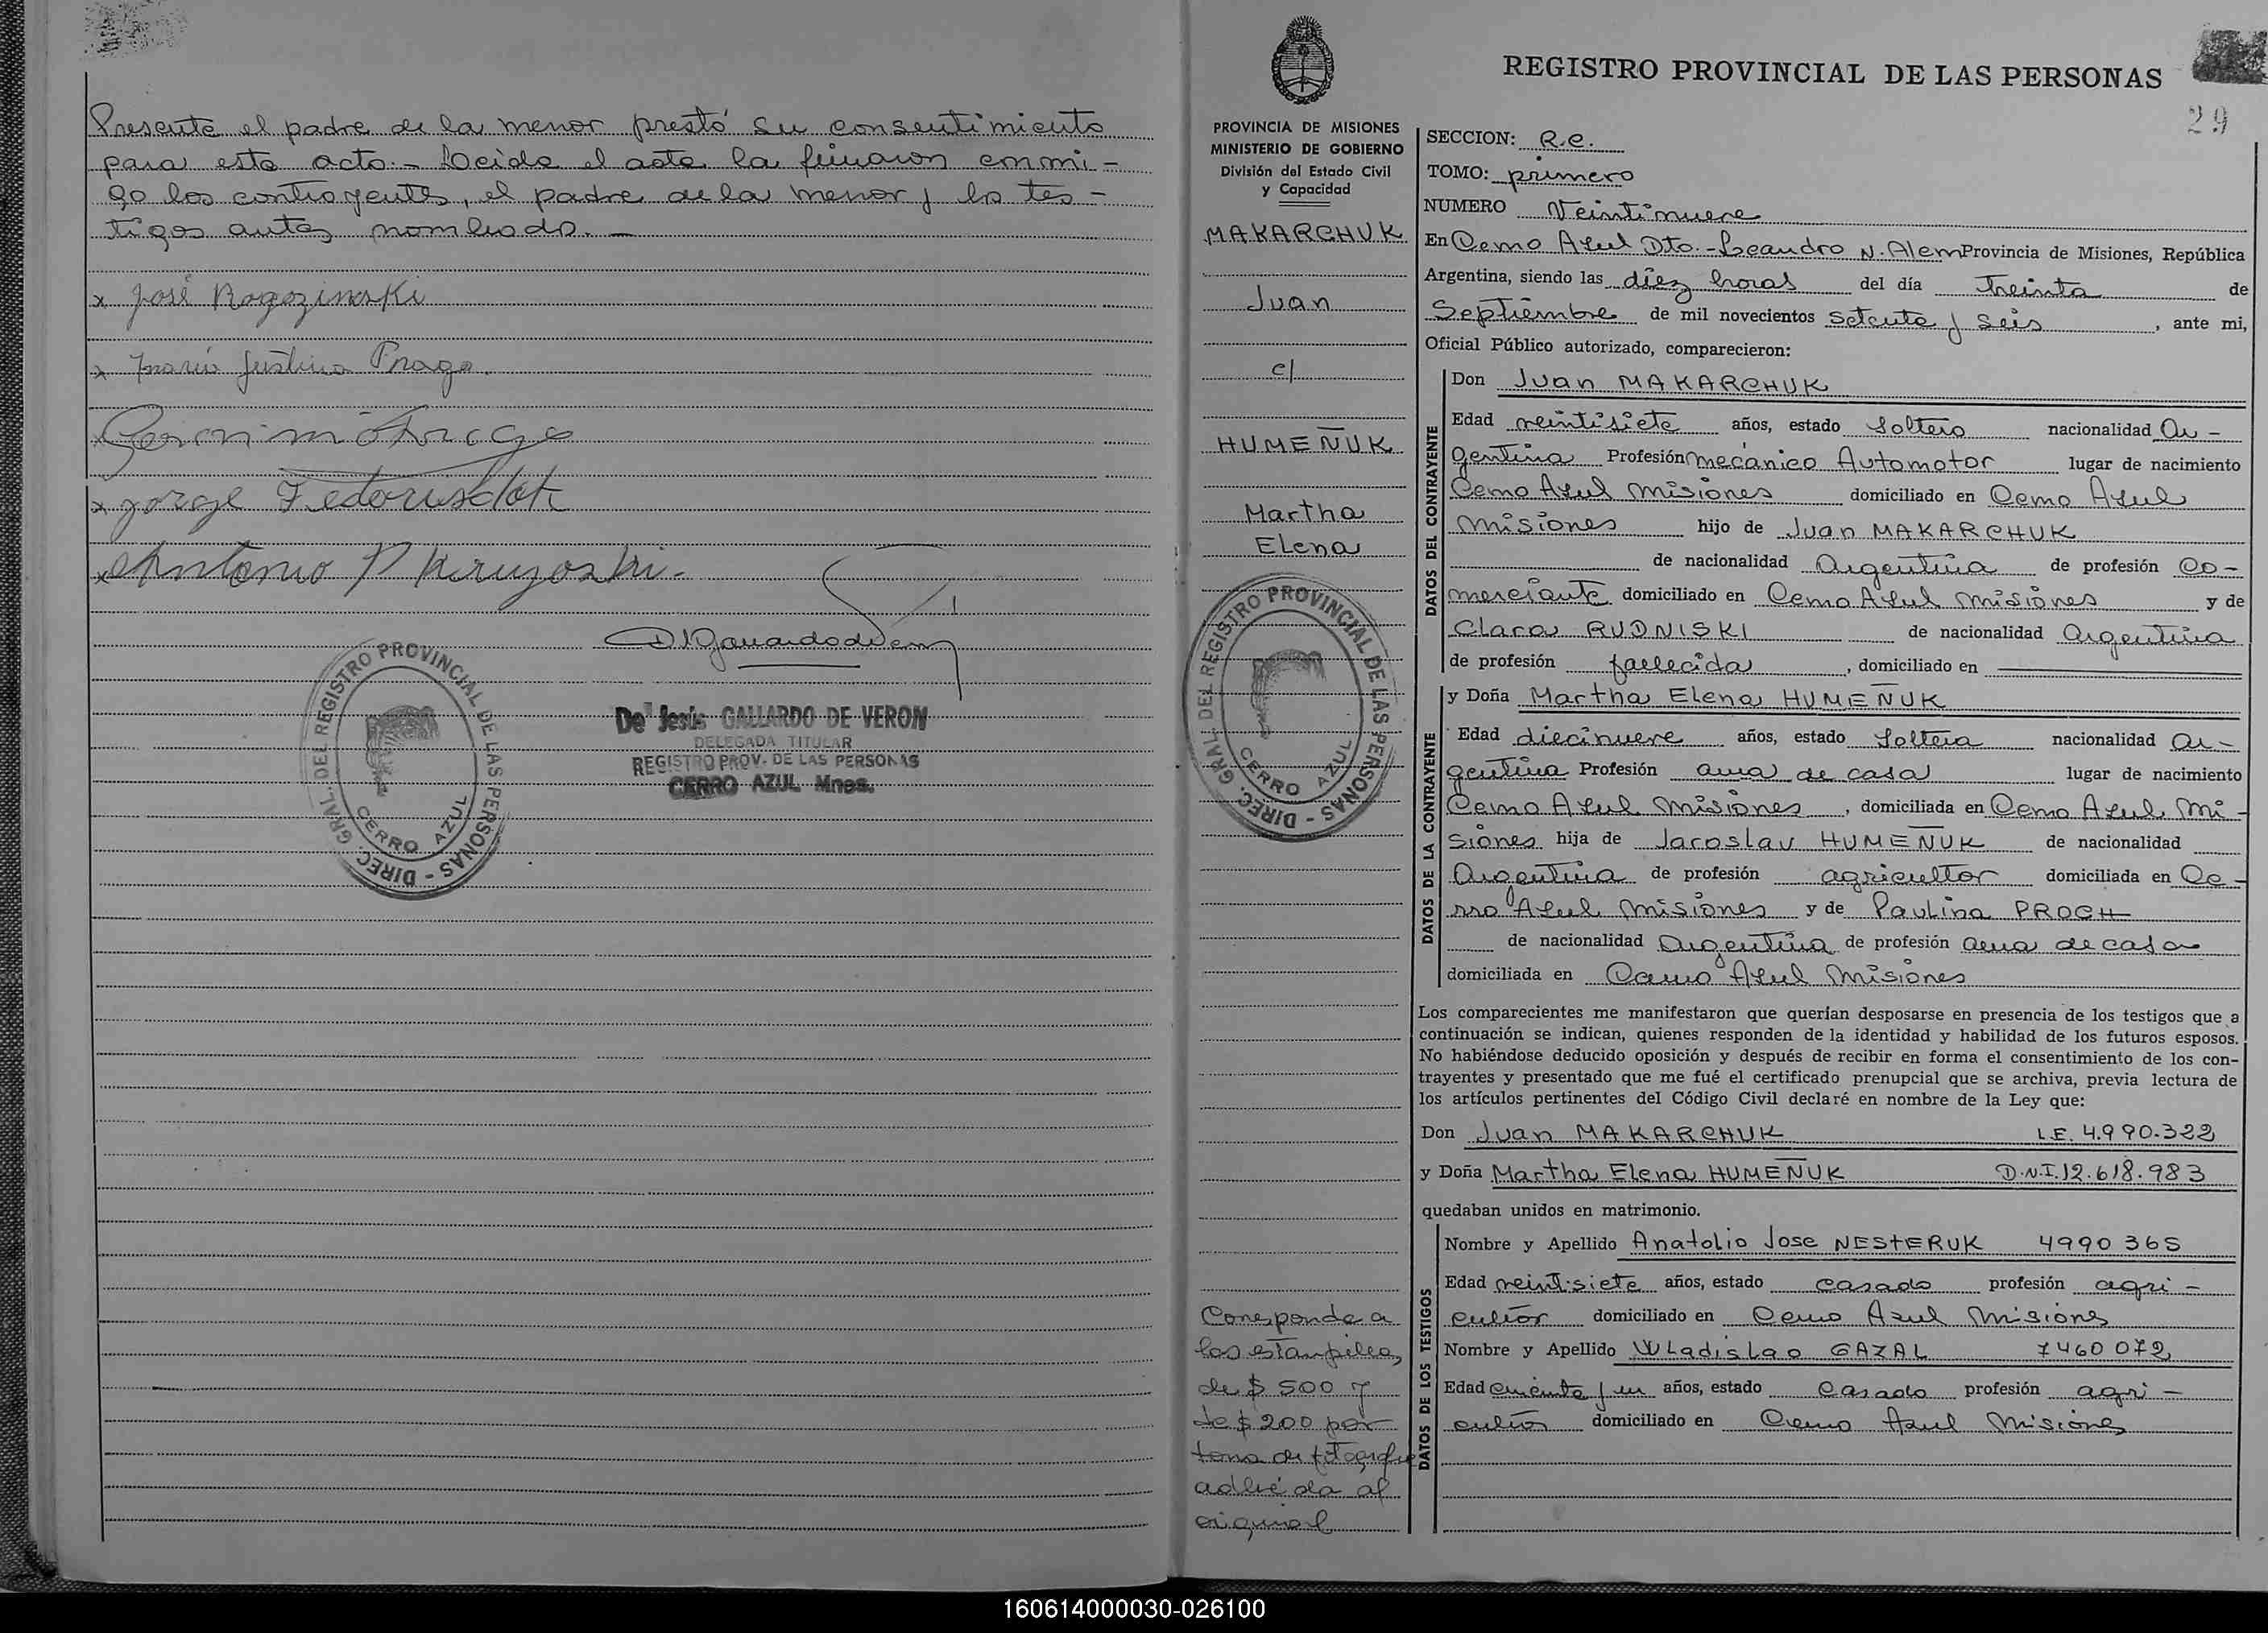 Presente el padre de la menor prestó su consentimiento
para este acto.- Leida el acta la firmaron conmi-
go los contrayentes, el padre de la menor y los tes-
tigos antes nombrados.-
x José Rogozinski
x María Justina Praga.
x Geronimo Praga
x Jorge
x Antonio P
GRAL. DEL REGISTRO PROVINCIAL DE LAS PERSONAS - DIREC.
CERRO AZUL
De Jesús GALLARDO DE VERON
DELEGADA TITULAR
REGISTRO PROV. DE LAS PERSONAS
CERRO AZUL Mnes.
PROVINCIA DE MISIONES
MINISTERIO DE GOBIERNO
División del Estado Civil
y Capacidad
MAKARCHUK
Juan
c/
HUMEÑUK
Martha
Elena
GRAL. DEL REGISTRO PROVINCIAL DE LAS PERSONAS - DIREC.
CERRO AZUL
Corresponde a
las estampillas
de $ 500 y
de $ 200 por
toma de fotografia
adherida al
original
REGISTRO PROVINCIAL DE LAS PERSONAS
29
SECCION: R.C.
TOMO: primero
NUMERO Veintinueve
En Cerro Azul Dto.-Leandro N. Alem Provincia de Misiones, República
Argentina, siendo las diez horas del día Treinta de
Septiembre de mil novecientos setenta y seis, ante mi,
Oficial Público autorizado, comparecieron:
DATOS DEL CONTRAYENTE
Don Juan MAKARCHUK
Edad veintisiete años, estado Soltero nacionalidad Ar-
gentina Profesión mecánico Automotor lugar de nacimiento
Cerro Azul Misiones domiciliado en Cerro Azul
Misiones hijo de Juan MAKARCHUK
de nacionalidad Argentina de profesión Co-
merciante domiciliado en Cerro Azul Misiones y de
Clara RUDNISKI de nacionalidad Argentina
de profesión fallecida, domiciliado en
DATOS DE LA CONTRAYENTE
y Doña Martha Elena HUMEÑUK
Edad diecinueve años, estado Soltera nacionalidad Ar-
gentina Profesión ama de casa lugar de nacimiento
Cerro Azul Misiones, domiciliada en Cerro Azul Mi-
siones hija de Jaroslav HUMEÑUK de nacionalidad
Argentina de profesión agricultor domiciliada en Ce-
rro Azul Misiones y de Paulina PROCH
de nacionalidad Argentina de profesión ama de casa
domiciliada en Cerro Azul Misiones
Los comparecientes me manifestaron que querían desposarse en presencia de los testigos que a
continuación se indican, quienes responden de la identidad y habilidad de los futuros esposos.
No habiéndose deducido oposición y después de recibir en forma el consentimiento de los con-
trayentes y presentado que me fué el certificado prenupcial que se archiva, previa lectura de
los artículos pertinentes del Código Civil declaré en nombre de la Ley que:
Don Juan MAKARCHUK L.E. 4.990.322
y Doña Martha Elena HUMEÑUK D.N.I.12.618.983
quedaban unidos en matrimonio.
DATOS DE LOS TESTIGOS
Nombre y Apellido Anatolio Jose NESTERUK 4990365
Edad veintisiete años, estado casado profesión agri-
cultor domiciliado en Cerro Azul Misiones
Nombre y Apellido Wladislao GAZAL 7460072
Edad cincuenta y un años, estado Casado profesión agri-
cultor domiciliado en Cerro Azul Misiones
160614000030-026100